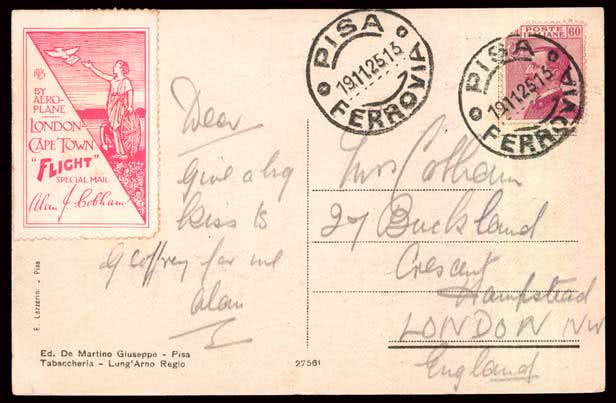 BY
AERO-
PLANE
LONDON-
CAPE TOWN
"FLIGHT"
SPECIAL MAIL
Alan J Cobham
PISA
19.11.25.15
FERROVIA
POSTE ITALIANE 60
PISA
19.11.25.15
FERROVIA
Dear
Give a big
kiss to
Geoffrey for me
Alan
Mrs Cobham
27 Buckland
Crescent
Hampstead
LONDON NW
England
E. Lazzerini - Pisa
Ed. De Martino Giuseppe - Pisa
Tabaccheria - Lung'Arno Regio
27561